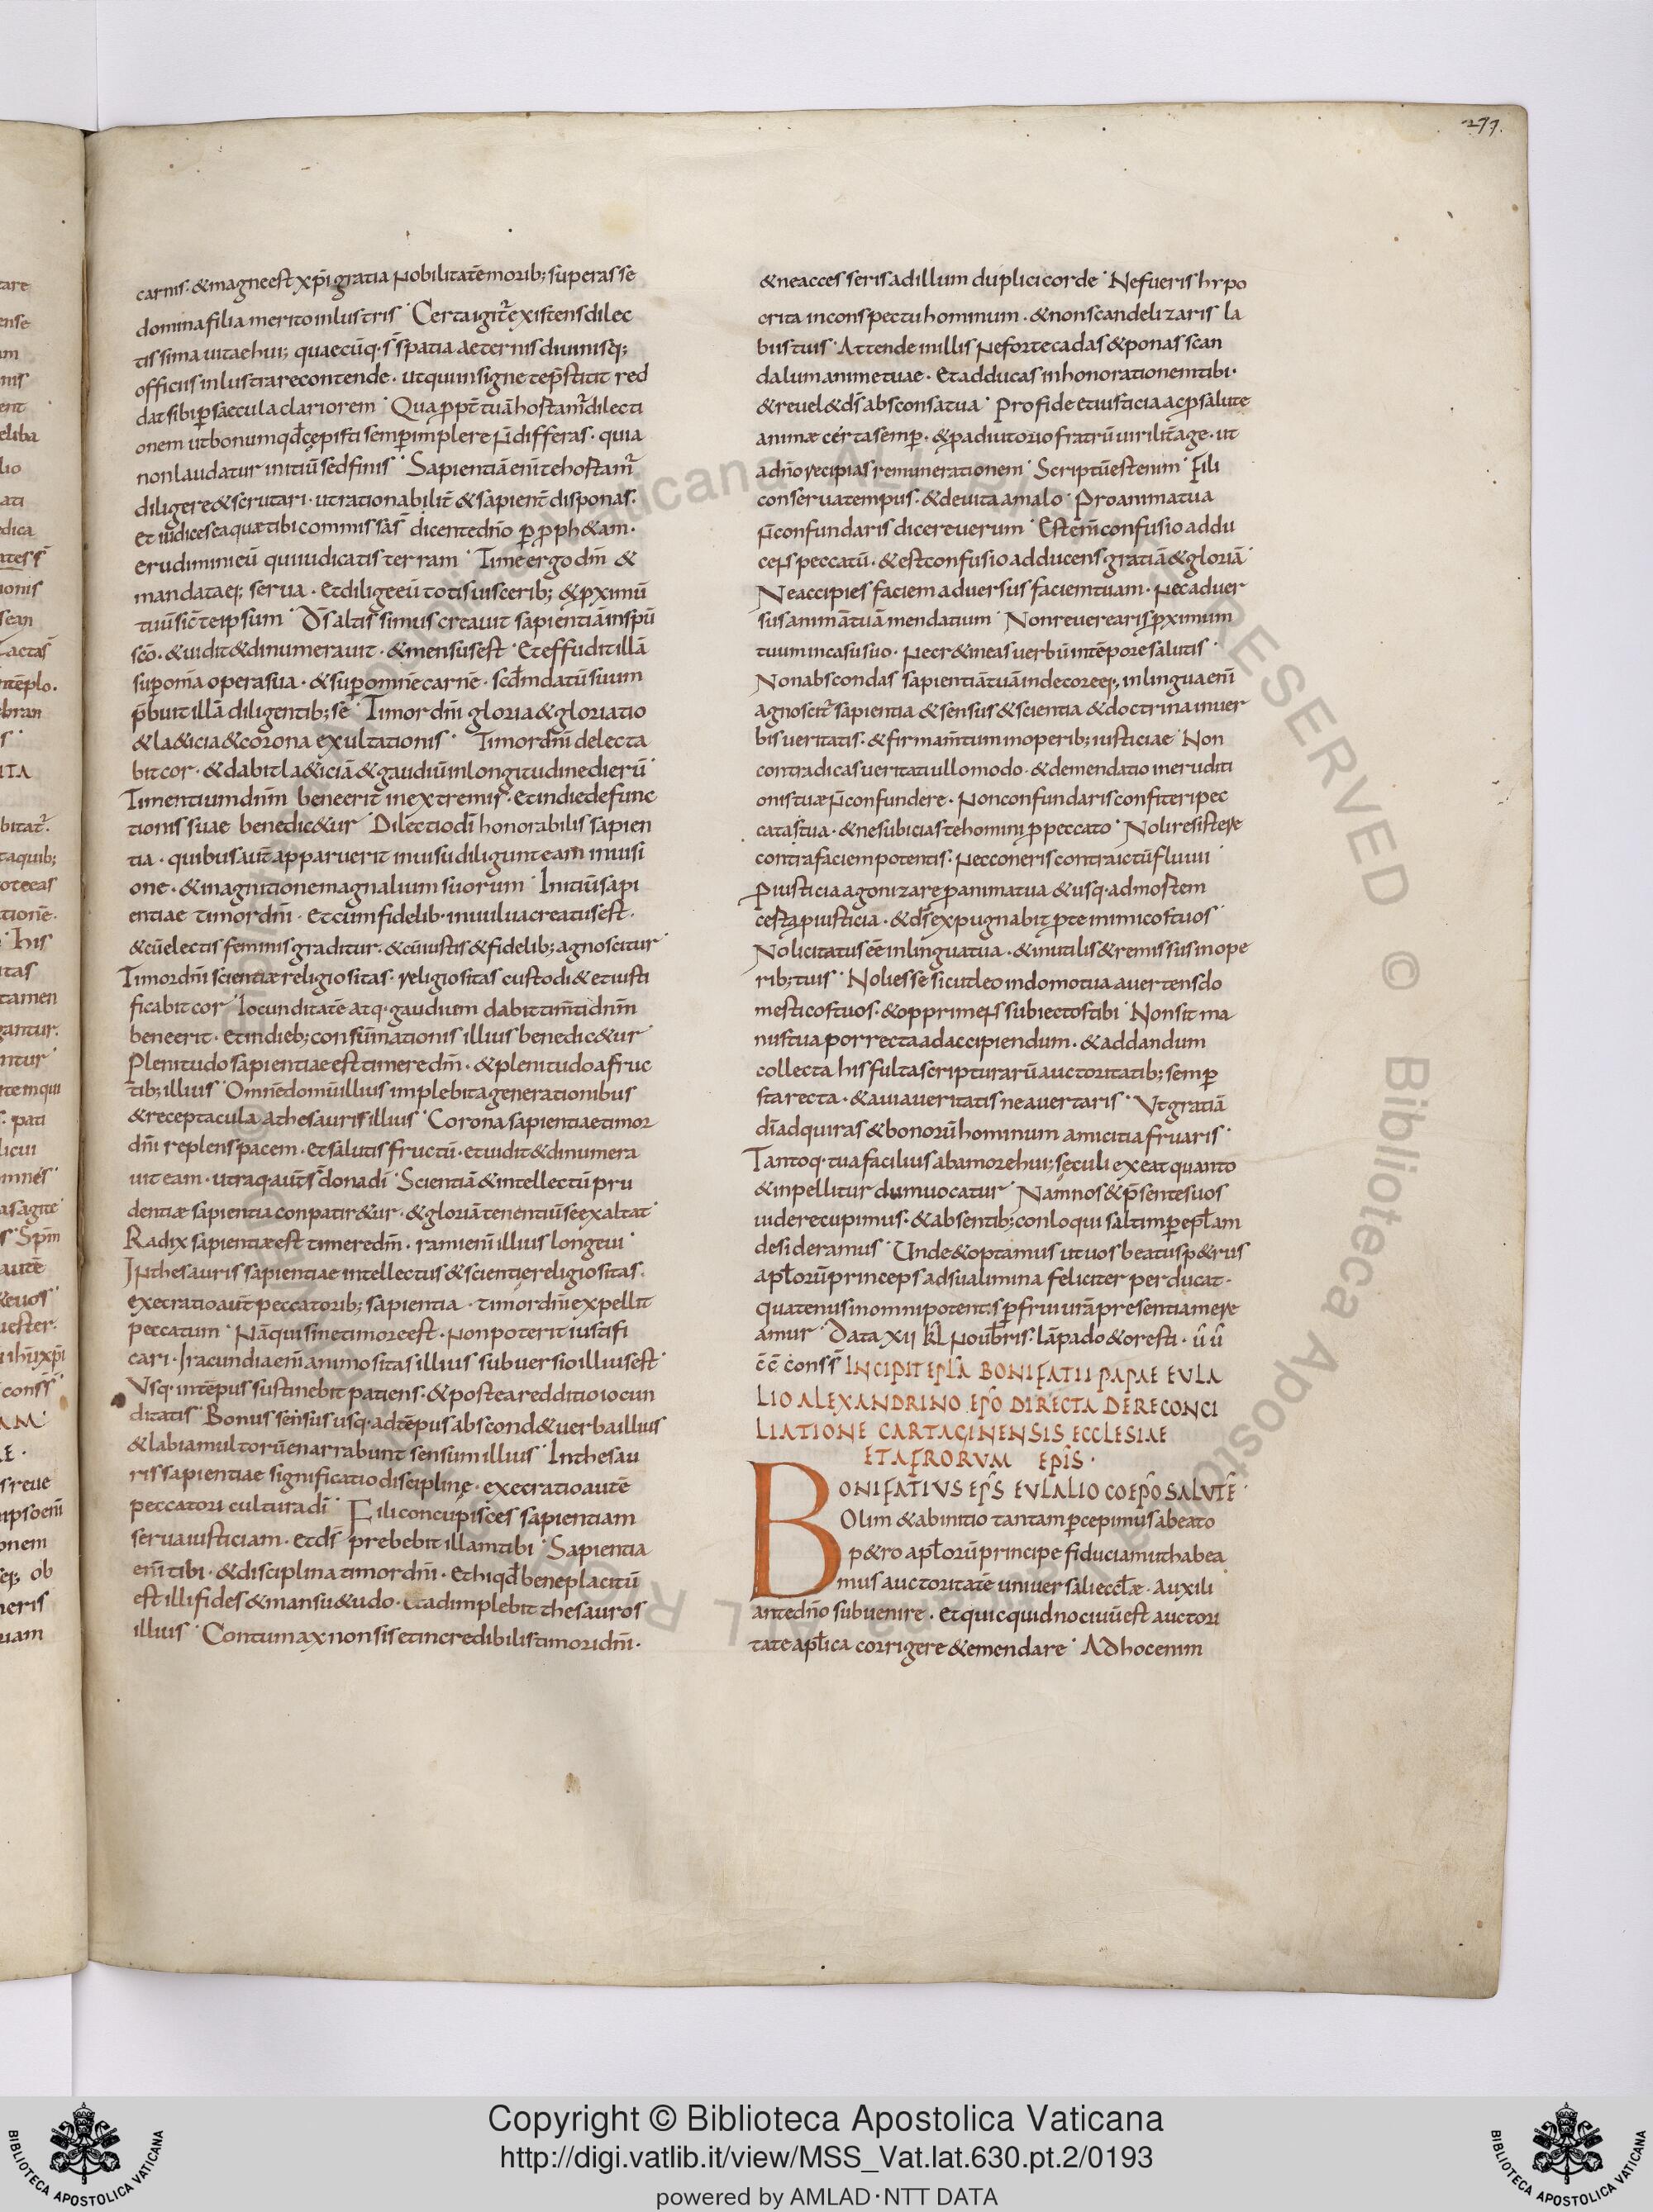 277.
carnis · & magne est xp̄i gratia nobilitatē morib; superasse
domina filia merito inlustris · Certa igit̄ existens dilec
tissima uitae hui; quaecūq· s̄ spatia aeternis diuinisq;
officiis inlustrare contende · ut qui insigne te p̄stitit red
dat sibi ꝑ saecula clariorem · Qua ppt̄ tuā hostam̄ dilecti
onem ut bonum qd̄ cępisti semꝑ implere n̄ differas · quia
non laudatur initiū sed finis · Sapientiā enī te hostam̄
diligere & scrutari · ut rationabilit̄ & sapient̄ disponas ·
et iudices ea quæ tibi commissa s̄ dicente dn̄o ꝑ proph&am ·
erudimini eū qui iudicatis terram · Time ergo dm̄ &
mandata ei; serua · Et dilige eū totis uiscerib; & pximū
tuū sic̄ te ipsum · Ds̄ altissimus creauit sapientiā in spū
sc̄o · & uidit & dinumerauit · & mensus est · Et effudit illā
suꝑ om̄ia opera sua · & suꝑ omnē carnē · scd̄m datū suum
p̄buit illā diligentib; se · Timor dn̄i gloria & gloriatio
& l&icia & corona exultationis · Timor dn̄i delecta
bit cor · & dabit l&iciā & gaudiū in longitudine dierū ·
Timentium dnm̄ bene erit in extremis · et in die defunc
tionis suae benedic&ur · Dilectio dī honorabilis sapien
tia · quibus aut̄ apparuerit in uisu diligunt eam in uisi
one · & in agnitione magnalium suorum · Initiū sapi
entiae timor dn̄i · et cum fidelib· in uulua creatus est ·
& cū electis feminis graditur · & cū iustis & fidelib; agnoscitur ·
Timor dn̄i scientiæ religiositas · religiositas custodi& et iusti
ficabit cor · Iocunditatē atq· gaudium dabit timti dnm̄
bene erit · et in dieb; consūmationis illius benedic&ur ·
Plenitudo sapientiae est timere dm̄ · & plenitudo a fruc
tib; illius · Omnē domū illius implebit a generationibus
& receptacula a thesauris illius · Corona sapientiae timor
dn̄i replens pacem · et salutis fructū · et uidit & dinumera
uit eam · utraq· aut̄ s̄ dona dī · Scientiā & intellectū pru
dentiæ sapientia conpatir&ur · & gloriā tenentiū se exaltat ·
Radix sapientiæ est timere dm̄ · rami enī illius longeui ·
In thesauris sapientiae intellectus & scientię religiositas ·
execratio aut̄ peccatorib; sapientia · timor dn̄i expellit
peccatum · Nā qui sine timore est · non poterit iustifi
cari · Iracundia enī animositas illius subuersio illius est ·
Vsq· in tēpus sustinebit patiens · & postea redditio iocun
ditatis · Bonus sensus usq· ad tēpus abscond& uerba illius
& labia multorū enarrabunt sensum illius · In thesau
ris sapientiae significatio disciplinę · execratio autē
peccatori cultura dī · Fili concupisces sapientiam
serua iusticiam · et ds̄ prebebit illam tibi · Sapientia
enī tibi · & disciplina timor dn̄i · et hi qd̄ beneplacitū
est illi fides & mansu&udo · & adimplebit thesauros
illius · Contumax non sis et incredibilis timori dn̄i ·
& ne accesseris ad illum duplici corde · Ne fueris hypo
crita in conspectu hominum · & non scandelizaris la
biis tuis · Attende in illis ne forte cadas & ponas scan
dalum anime tuae · et adducas inhonorationem tibi ·
& reuel& ds̄ absconsa tua · Pro fide et iusticia ac p salute
animæ certa semꝑ · & p adiutorio fratrū uirilit̄ age · ut
a dn̄o recipias remunerationem · Scriptū est enim · Fili
conserua tempus · & deuita a malo · Pro anima tua
n̄ confundaris dicere uerum · Est enī confusio addu
cens peccatū · & est confusio adducens gratiā & gloriā ·
Ne accipies faciem aduersus faciem tuam · nec aduer
sus animā tuā mendatium · Non reuerearis pximum
tuum in casu suo · nec r&ineas uerbū in tēpore salutis ·
Non abscondas sapientiā tuā in decore ei; in lingua enī
agnoscit̄ sapientia & sensus & scientia & doctrina in uer
bis ueritatis · & firmam̄tum in operib; iusticiae · Non
contradicas ueritati ullo modo · & de mendatio ineruditi
onis tuæ n̄ confundere · Non confundaris confiteri pec
cata tua · & ne subicias te homini p peccato · Noli resistere
contra faciem potentis · nec coneris contra ictū fluuii ·
P iusticia agonizare p anima tua & usq· ad mortem
certa p iusticia · & ds̄ expugnabit p te inimicos tuos ·
Noli citatus eē in lingua tua · & inutilis & remissus in ope
rib; tuis · Noli esse sicut leo in domo tua auertens do
mesticos tuos · & opprimens subiectos tibi · Non sit ma
nus tua porrecta ad accipiendum · & ad dandum
collecta his fulta scripturarū auctoritatib; semꝑ
sta recta · & a uia ueritatis ne auertaris · Vt gratiā
dī adquiras & bonorū hominum amicitia fruaris ·
Tantoq· tua facilius ab amore hui; seculi exeat quanto
& inpellitur dum uocatur · Nam nos & p̄sentes uos
uidere cupimus · & absentib; conloqui saltim ꝑ epl̄am
desideramus · Unde & optamus ut uos beatus p&rus
apl̄orū princeps ad sua limina feliciter perducat ·
quatenus in omnipotentis ꝑfrui urā presentia mere
amur · Data XII kl̄ nouēbris · lāpado & oresti · ū ū
c̄ c̄ conss̄ INCIPIT EPLA BONIFATII PAPAE EVLA
LIO ALEXANDRINO EPO DIRECTA DE RECONCI
LIATIONE CARTAGINENSIS ECCLESIAE
ET AFRORVM EPIS ·
BONIFATIVS EPS EVLALIO COEPO SALVTE ·
Olim & ab initio tantam ꝑcepimus a beato
p&ro apl̄orū principe fiduciam ut habea
mus auctoritatē uniuersali eccl̄æ · auxili
ante dn̄o subuenire · et quicquid nociuū est auctori
tate apl̄ica corrigere & emendare · Ad hoc enim
Copyright © Biblioteca Apostolica Vaticana
http://digi.vatlib.it/view/MSS_Vat.lat.630.pt.2/0193
powered by AMLAD·NTT DATA
BIBLIOTECA APOSTOLICA VATICANA
BIBLIOTECA APOSTOLICA VATICANA